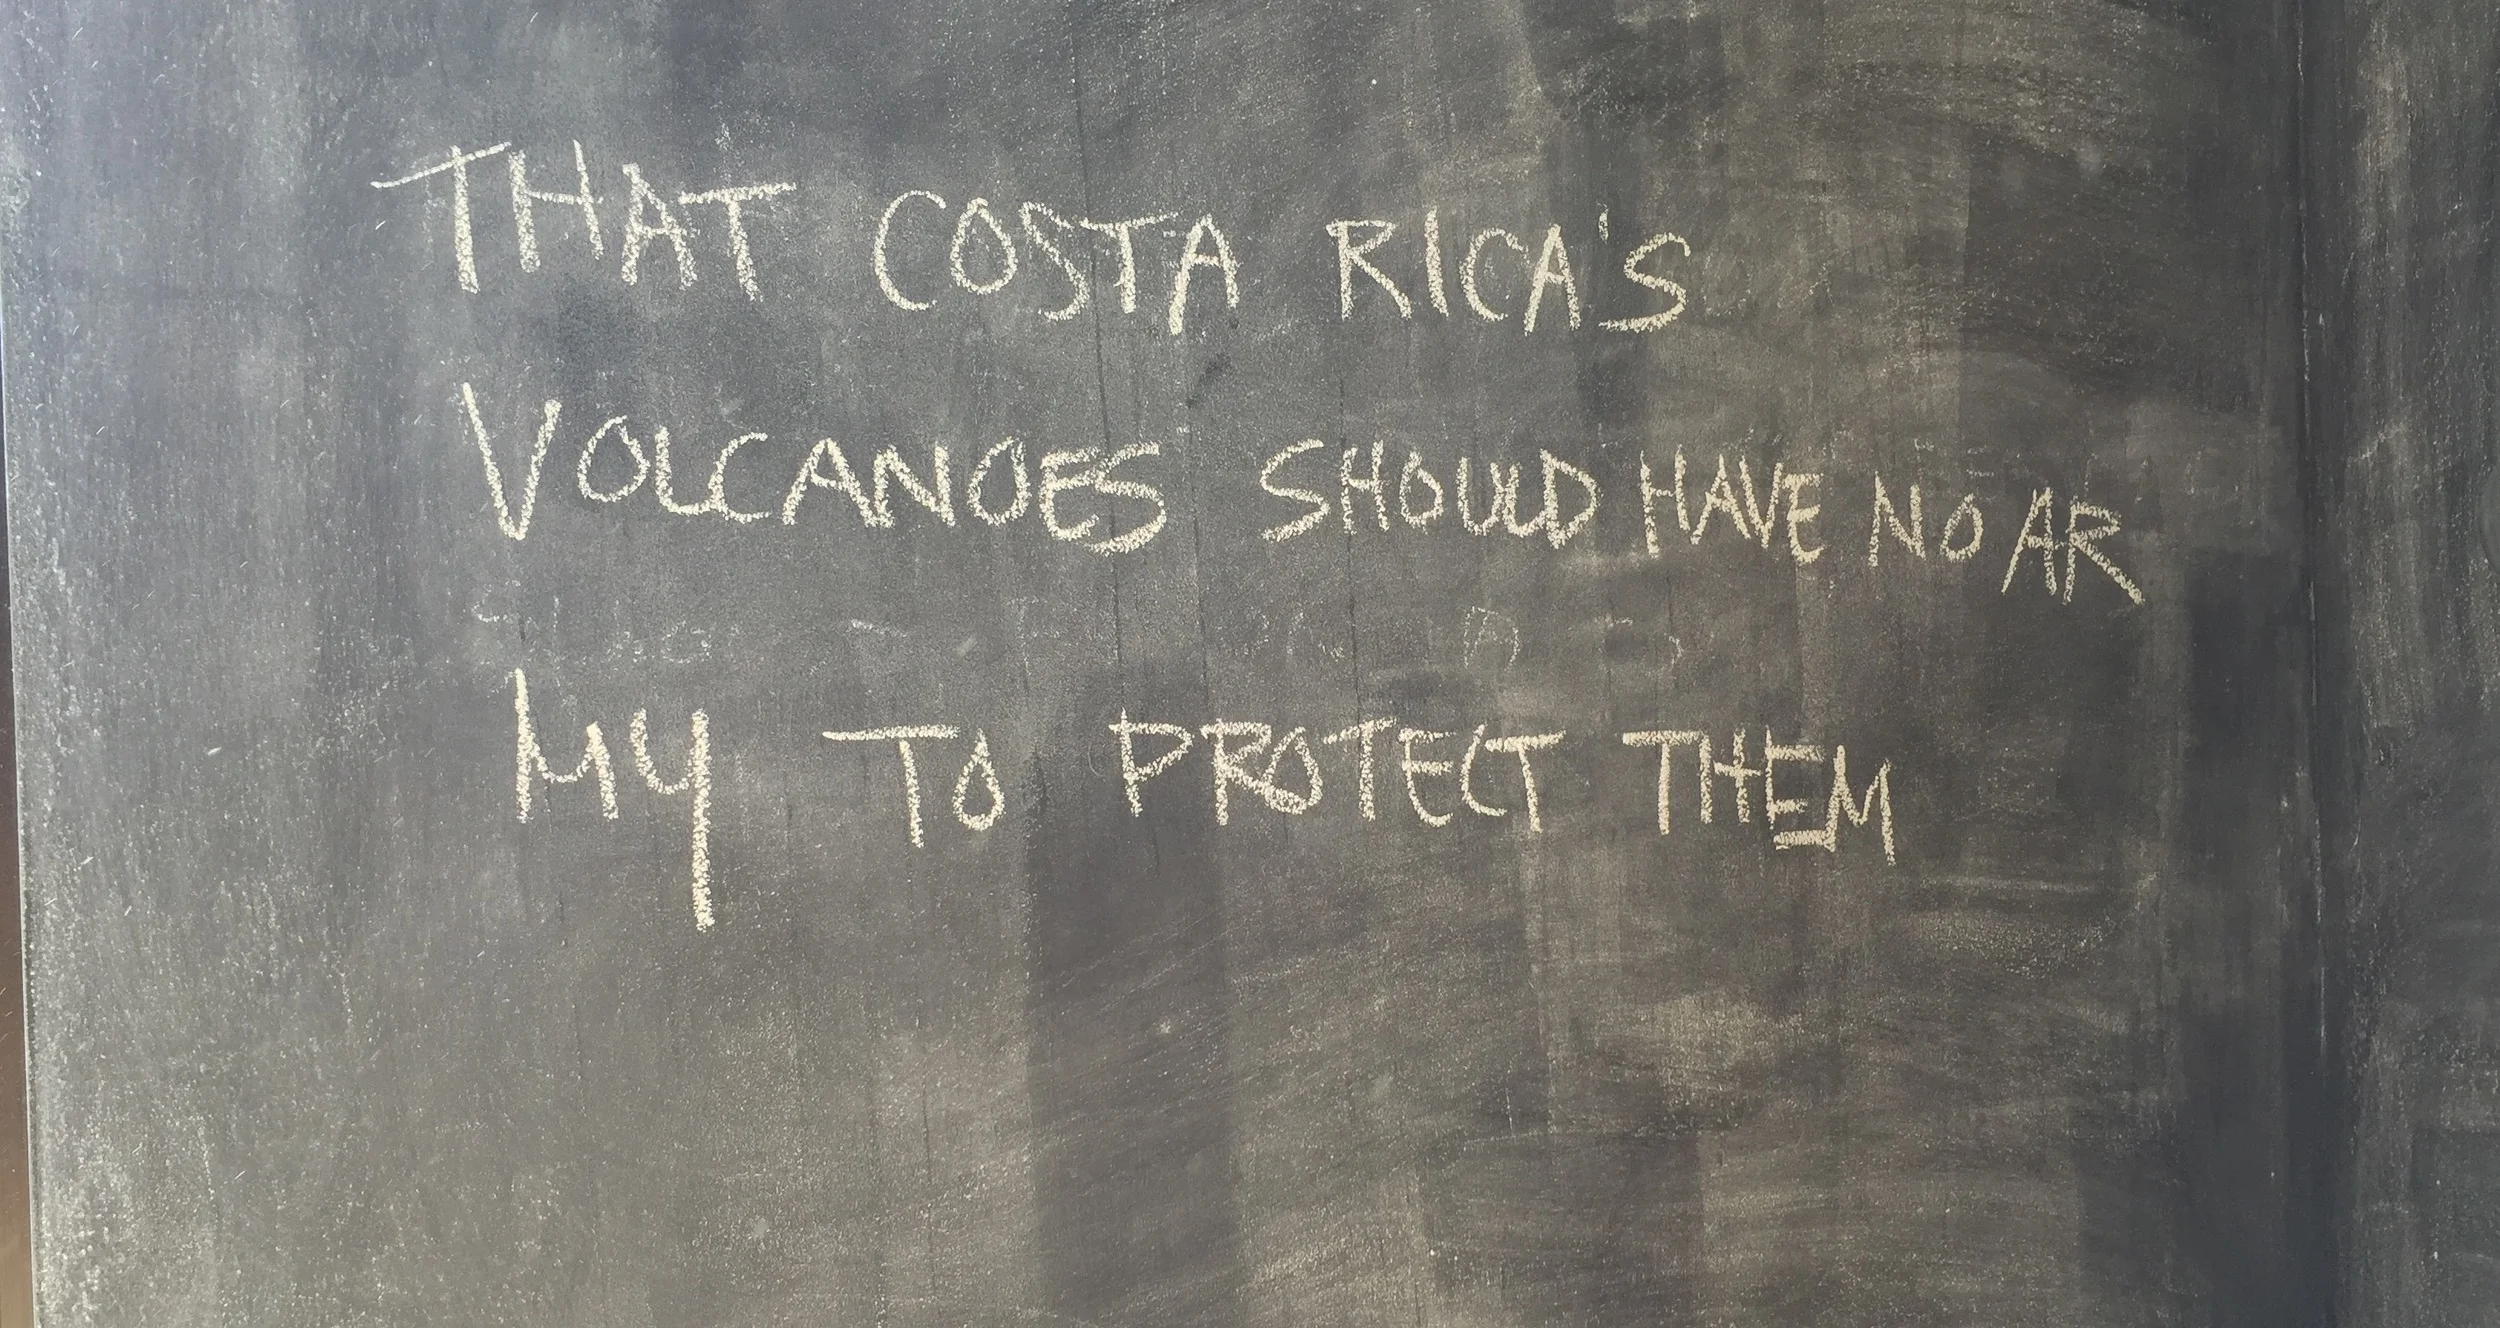 THAT COSTA RICA'S
VOLCANOES SHOULD HAVE NO AR
MY TO PROTECT THEM